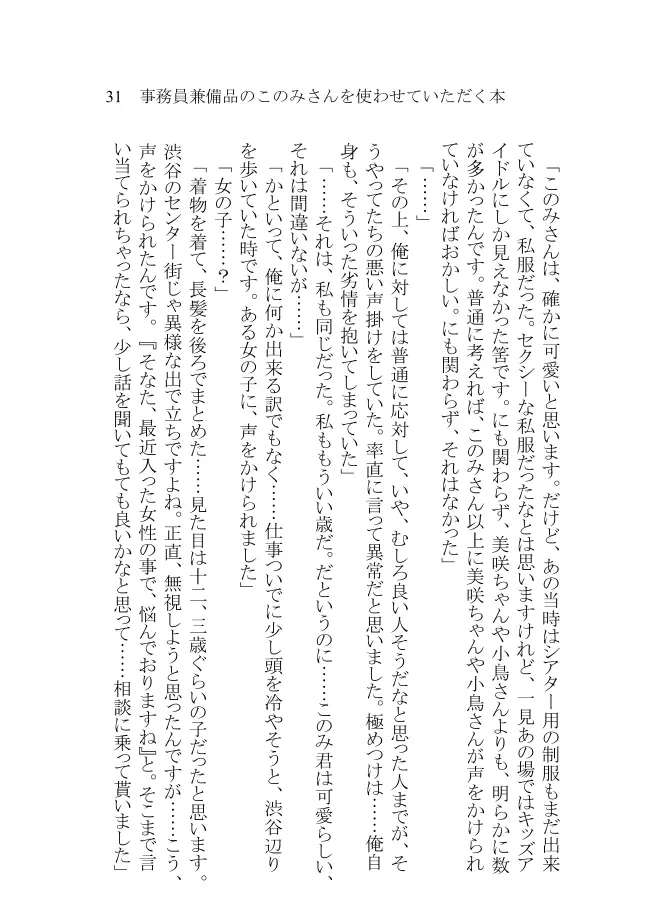 31　事務員兼備品のこのみさんを使わせていただく本
「このみさんは、確かに可愛いと思います。だけど、あの当時はシアター用の制服もまだ出来
ていなくて、私服だった。セクシーな私服だったなとは思いますけれど、一見あの場ではキッズア
イドルにしか見えなかった筈です。にも関わらず、美咲ちゃんや小鳥さんよりも、明らかに数
が多かったんです。普通に考えれば、このみさん以上に美咲ちゃんや小鳥さんが声をかけられ
ていなければおかしい。にも関わらず、それはなかった」
「……」
「その上、俺に対しては普通に応対して、いや、むしろ良い人そうだなと思った人までが、そ
うやってたちの悪い声掛けをしていた。率直に言って異常だと思いました。極めつけは……俺自
身も、そういった劣情を抱いてしまっていた」
「……それは、私も同じだった。私ももういい歳だ。だというのに……このみ君は可愛らしい、
それは間違いないが……」
「かといって、俺に何か出来る訳でもなく……仕事ついでに少し頭を冷やそうと、渋谷辺り
を歩いていた時です。ある女の子に、声をかけられました」
「女の子……？」
「着物を着て、長髪を後ろでまとめた……見た目は十二、三歳ぐらいの子だったと思います。
渋谷のセンター街じゃ異様な出で立ちですよね。正直、無視しようと思ったんですが……こう、
声をかけられたんです。『そなた、最近入った女性の事で、悩んでおりますね』と。そこまで言
い当てられちゃったなら、少し話を聞いてもても良いかなと思って……相談に乗って貰いました」